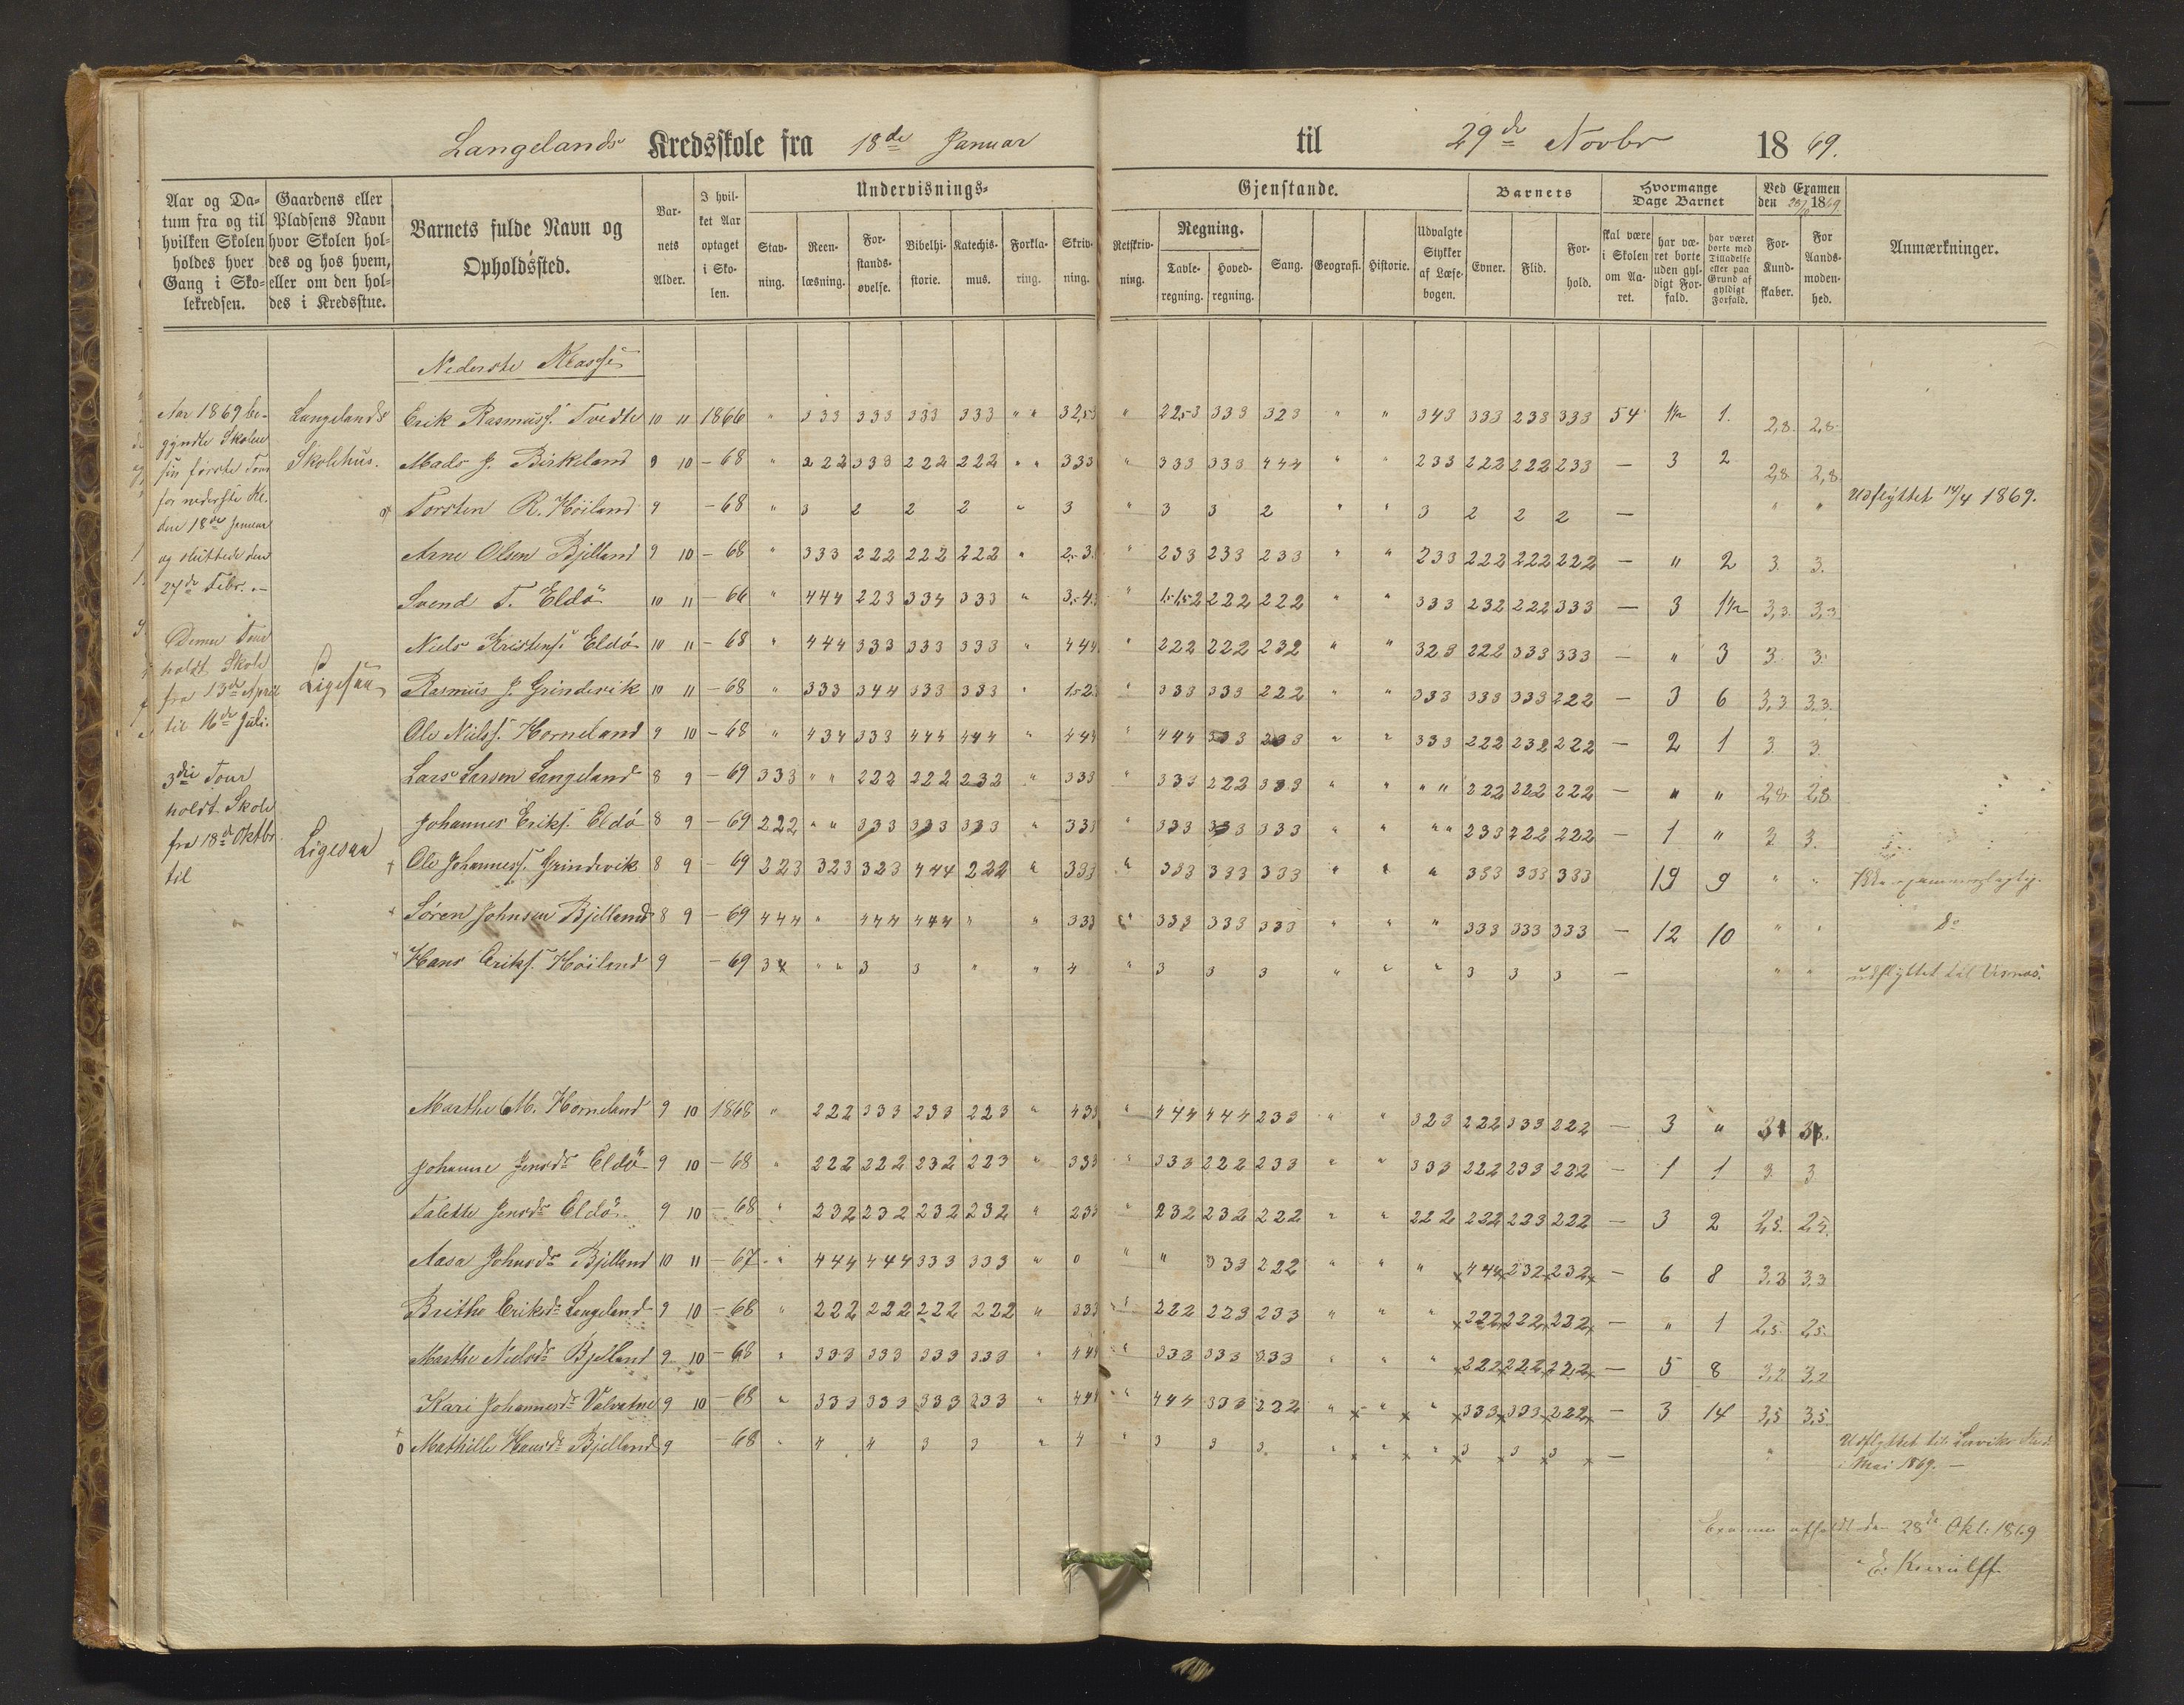 Langelands Kredsskole fra 18de Januar til 29de Novbr 1869.
Aar og Datum fra og til hvilken Skolen holdes hver Gang i Skolekredsen.
Gaardens eller Pladsens Navn hvor Skolen holdes og hos hvem, eller om den holdes i Kredsstue.
Barnets fulde Navn og Opholdssted.
Barnets Alder.
I hvilket Aar optaget i Skolen.
Undervisnings-Gjenstande.
Stavning. Reenlæsning. Forstandsøvelse. Bibelhistorie. Katechismus. Forklaring. Skrivning. Retskrivning.
Regning. Tavleregning. Hovedregning. Sang. Geografi. Historie. Udvalgte Stykker af Læsebogen.
Barnets Evner. Flid. Forhold.
Hvormange Dage Barnet skal være i Skolen om Aaret. har været borte uden gyldigt Forfald. har været borte med Tilladelse eller paa Grund af gyldigt Forfald.
Ved Examen den 28/10 1869. For Kundskaber. For Aandsmodenhed.
Anmærkninger.
Nederste Klasse
Aar 1869 be-
gyndte Skolen
sin første Tour
for nederste Kl.
den 18de Januar
og sluttede den
27de Febr. .-
Langelands
Skolehus.
Denne Tour
holdt Skole
fra 13de April
til 16de Juli.
Ligesaa
3die Tour
holdt Skole
fra 18de Oktbr.
til
Ligesaa
Erik Rasmuss. Tvedte 10 11 1866 " 333 333 333 333 " " " 333 323 " " 343 333 233 333 54 1½ 1. 2,8. 2,8.
Mads J. Birkeland 9 10 – 68 " 222 333 222 222 " " 333 " 333 333 444 " " 233 222 222 233 — 3 2 2,8 2,8
Torsten R. Höiland 9 – 68 " 3 2 2 2 " 3 " 3 3 2 " " 3 2 2 2 — " " Udflyttet 14/4 1869.
Arne Olsen Bjelland 9 10 – 68 " 333 222 222 222 " " 233 233 233 " " 233 222 222 222 — " 2 3. 3.
Svend T. Eldö 10 11 – 66 " 444 223 334 333 " " 222 222 " " 333 232 222 333 — 3 1½ 3,3. 3,3
Niels Kristens. Eldö 10 11 – 68 " 444 333 333 333 " 444 " 222 222 232 " " 323 222 333 333 — " 3 3. 3.
Rasmus J. Grindevik 10 11 – 68 " 333 344 333 333 " " 333 333 222 " " 333 333 333 222 — 3 6 3,3 3,3.
Ole Nielss. Horneland 9 10 – 68 " 434 333 444 444 " 444 " 444 333 " " 333 222 232 222 — 2 1 3. 3.
Lars Larsen Langeland 8 9 – 69 333 " " 222 222 232 " 333 " 333 222 333 " " " " 222 222 222 — " " 2,8 2,8
Johannes Eriks. Eldö 8 9 – 69 222 " " 333 333 333 " 333 " 333 333 333 " " " " 233 222 222 — 1 " 3 3.
Ole Johanness. Grindevik 8 9 69 223 323 323 444 222 " 333 " 333 333 333 " " " 333 333 333 19 9 " "
Sören Johnsen Bjelland 8 9 – 69 444 " 444 444 " " 333 " 333 333 333 " " " 333 333 333 — 12 10 " " do
Hans Eriks. Höiland 9 – 69 " " 3 3 " " 4 " 3 3 3 " " " 3 3 3 — " " udflyttet til Visnæs.
Marthe M. Horneland 9 10 1868 " 222 333 233 223 " 433 " 444 444 233 " " 323 222 333 222 — 3 "
Johanne Jensdr Eldö 9 10 – 68 " 222 222 232 223 " 333 " 333 222 233 " " 333 222 233 222 — 1 1 3 3
Talette Jensdr Eldö 9 10 – 68 " 232 232 232 232 " 233 " 232 232 222 " " 222 222 223 222 — 3 2 2,5. 2,5.
Aasa Johnsdr Bjelland 10 11 – 67 " 444 444 333 333 " 0 " " 333 222 " " " 444 232 232 — 6 8 3,3 3,3
Brithe Eriksdr Langeland 9 10 – 68 " 222 222 222 222 " 333 " 222 223 233 " " " 222 222 232 — " 1 2,5. 2,5.
Marthe Nielsdr Bjelland 9 10 – 68 " 333 333 333 333 " 444 " 333 333 333 " " " 222 222 222 — 5 8 3,2 3,2
Kari Johannesdr Valvatne 9 10 – 68 " 333 333 333 233 " 444 " 444 333 222 " " " 333 333 222 — 3 14 3,5 3,5
Mathille Hansdr Bjelland 9 – 68 " 4 4 3 3 " 4 " 3 3 3. " " " 3 3 3 — " Udflyttet til
i Mai 1869. —
Examen afholdt den 28de Okt. 1869
E. Kierulff.